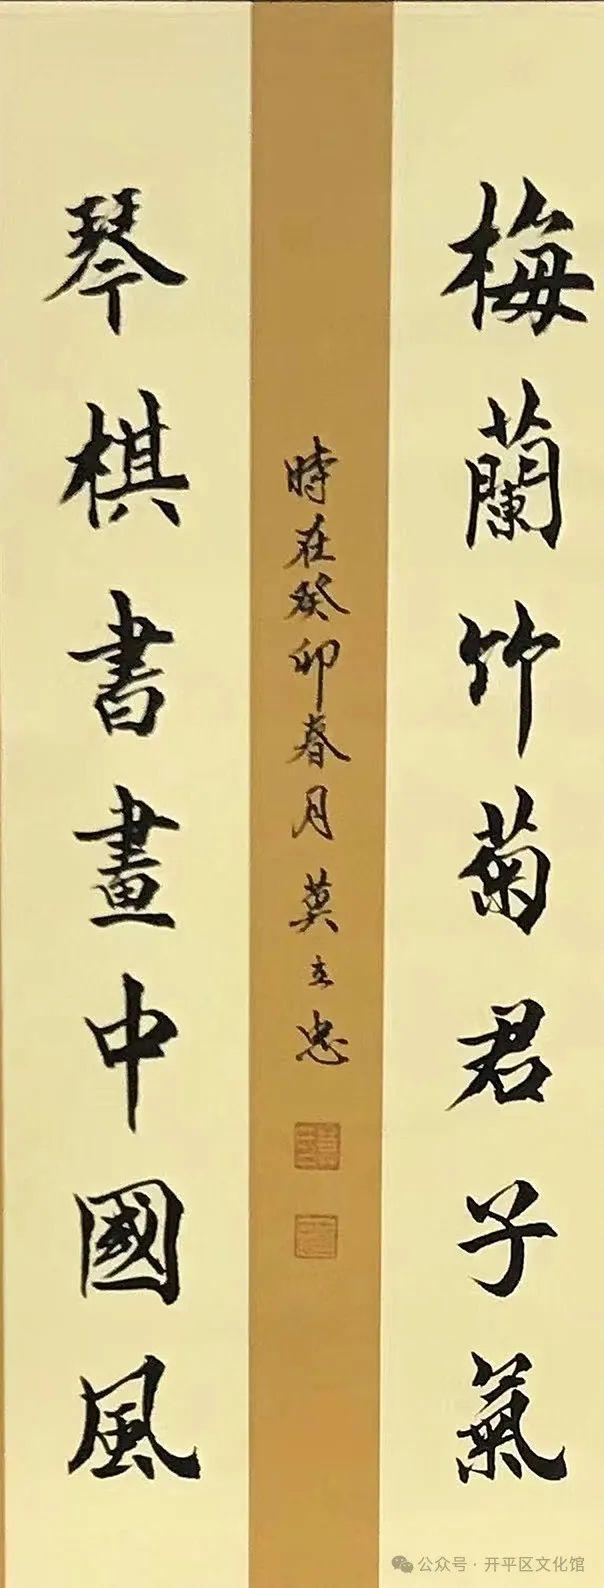 梅蘭竹菊君子氣
時在癸卯春月莫立忠
琴棋書畫中國風
公众号·开平区文化馆